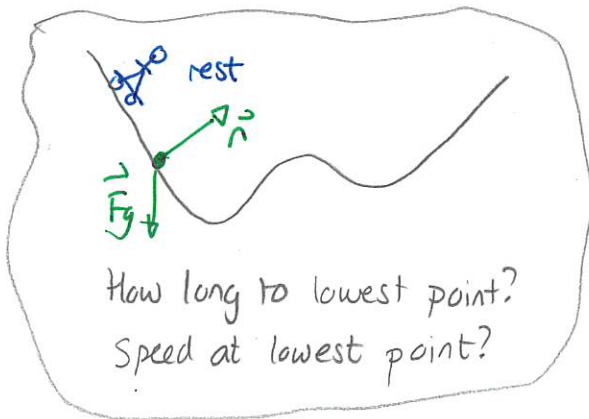 rest
n⃗
F⃗g
How long to lowest point?
Speed at lowest point?